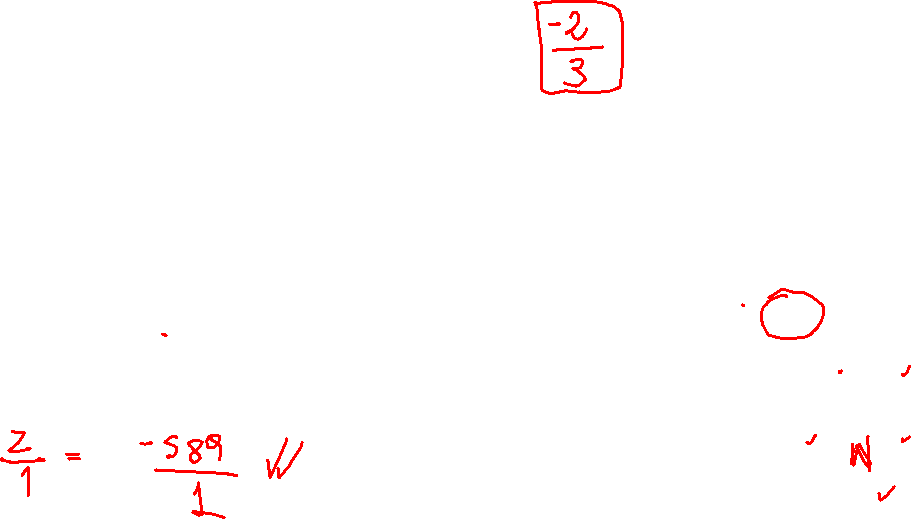 -2
3
2 = -589
1 1
N